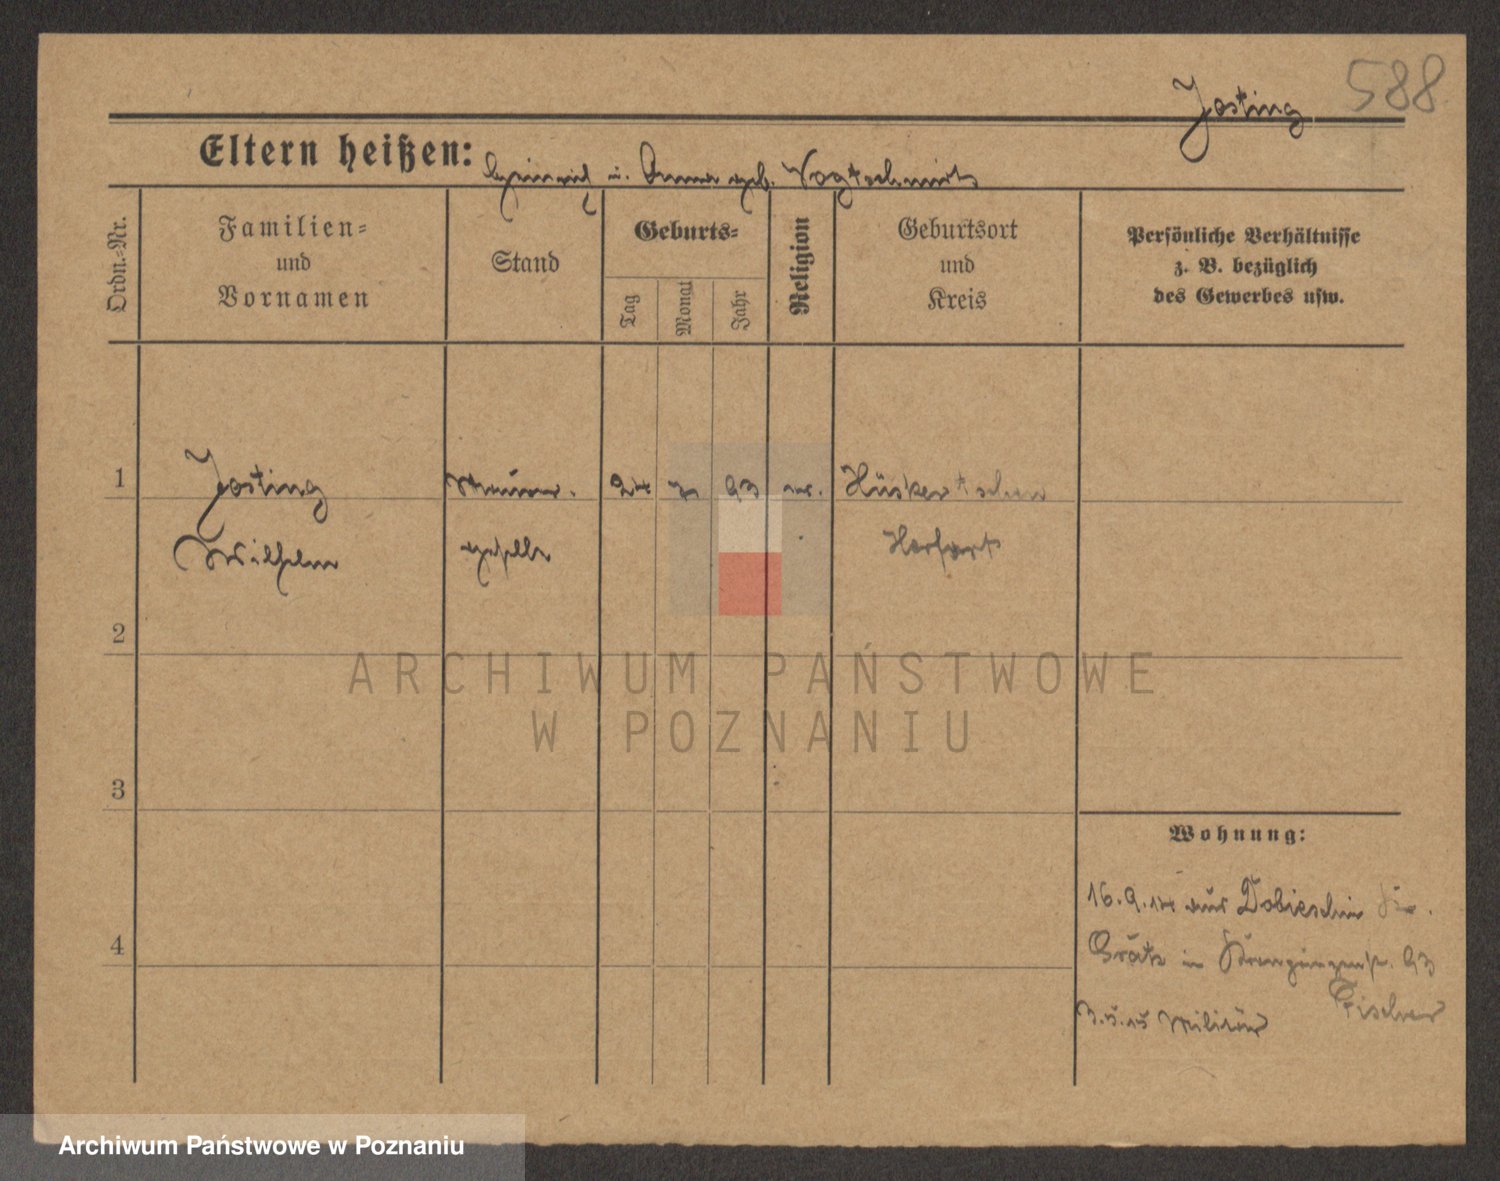 588
Josting
Eltern heißen: Heinrich u. Anna geb. Vogtschmidt
Ordn.-Nr.
Familien-
und
Vornamen
Stand
Geburts-
Tag
Monat
Jahr
Religion
Geburtsort
und
Kreis
Persönliche Verhältnisse
z. B. bezüglich
des Gewerbes usw.
1
Josting
Maurer-
24 7 93 ev.
Wilhelm
geselle
Herfort
2
3
4
Wohnung:
16.9.14 aus Dobieschin
Grätz in 93
Fischer
3.5.15 Militär
ARCHIWUM PAŃSTWOWE
W POZNANIU
Archiwum Państwowe w Poznaniu